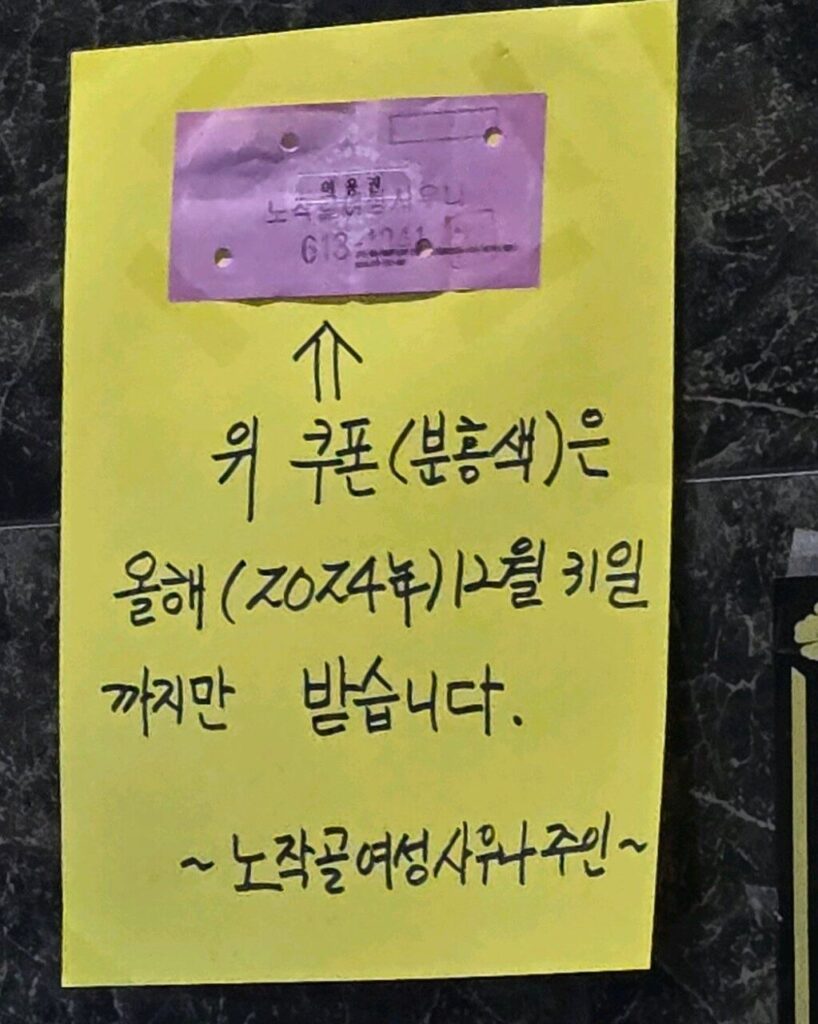 노작골여성사우나
613-1241
위 쿠폰(분홍색)은
올해(2024年)12월 31일
까지만 받습니다.
~노작골여성사우나주인~